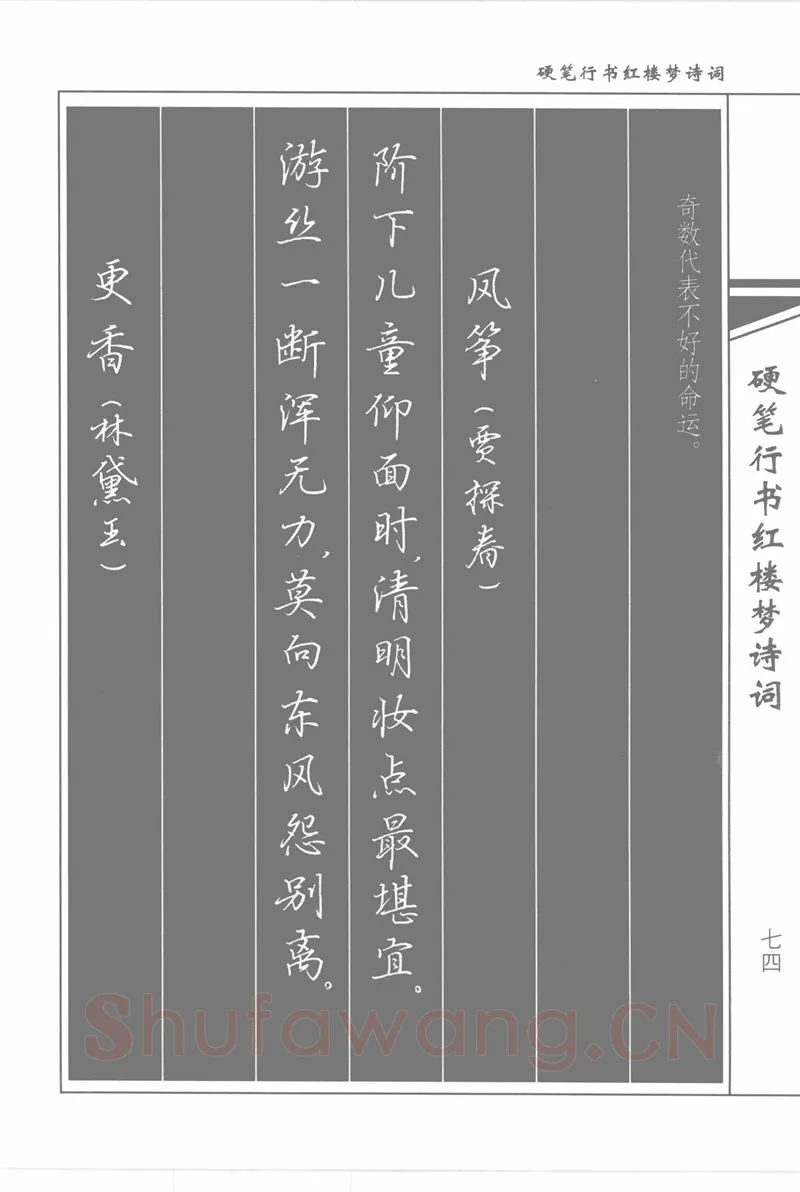 硬笔行书红楼梦诗词
硬笔行书红楼梦诗词
七四
奇数代表不好的命运。
风筝（贾探春）
阶下儿童仰面时，清明妆点最堪宜。
游丝一断浑无力，莫向东风怨别离。
更香（林黛玉）
Shufawang.CN